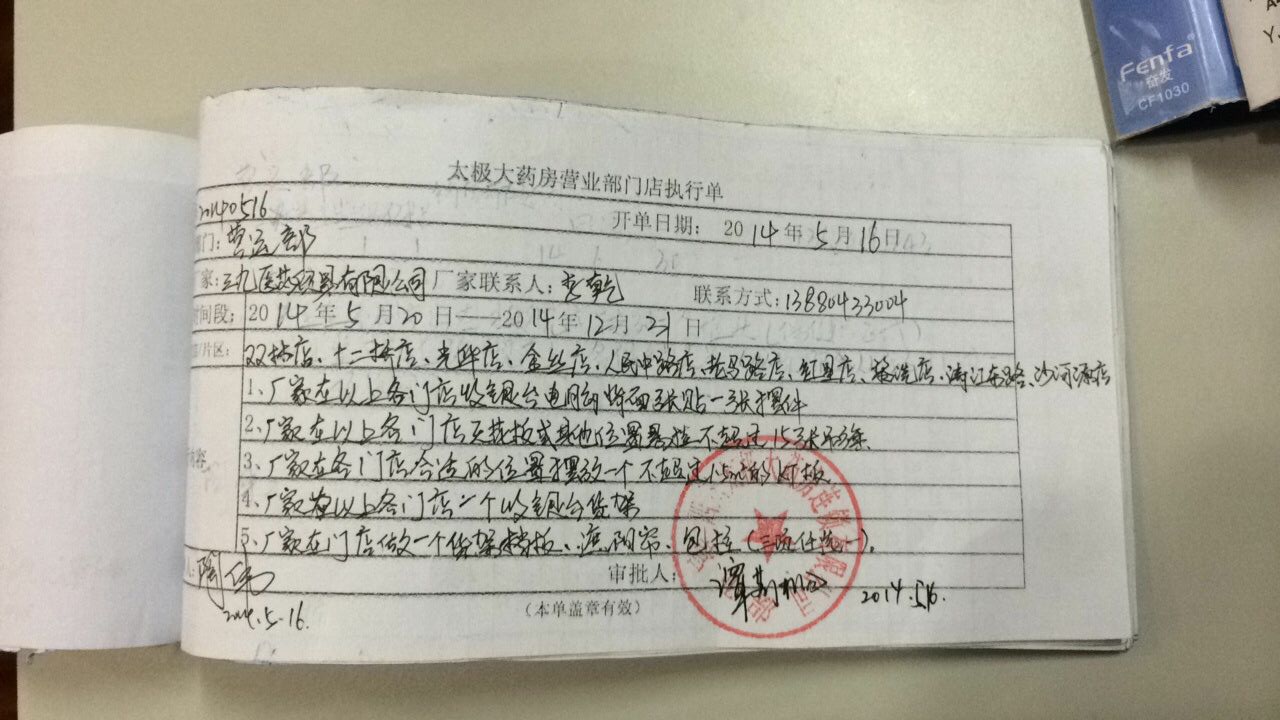 Fenfa
奋发
CF1030
太极大药房营业部门店执行单
20140516
开单日期: 2014年5月16日
部门:营运部
厂家:三九医药贸易有限公司 厂家联系人:李乾 联系方式:13880433004
时间段: 2014年5月20日——2014年12月31日
片区: 双林店、十二桥店、光华店、金丝店、人民中路店、红星店、浆洗店、清江东路、沙河源店
内容
1、厂家在以上各门店收银台电脑背面张贴一张
2、厂家在以上各门店天花板或其他位置悬挂不超过15张吊旗
3、厂家在各门店合适的位置摆放一个不超过1.5m的灯板
4、厂家在以上各门店一个收银台货架
5、厂家在门店做一个货架档板、遮阳帘、包柱(三项任选一)。
审批人:
2014.5.16.
2014.5.16.
(本单盖章有效)